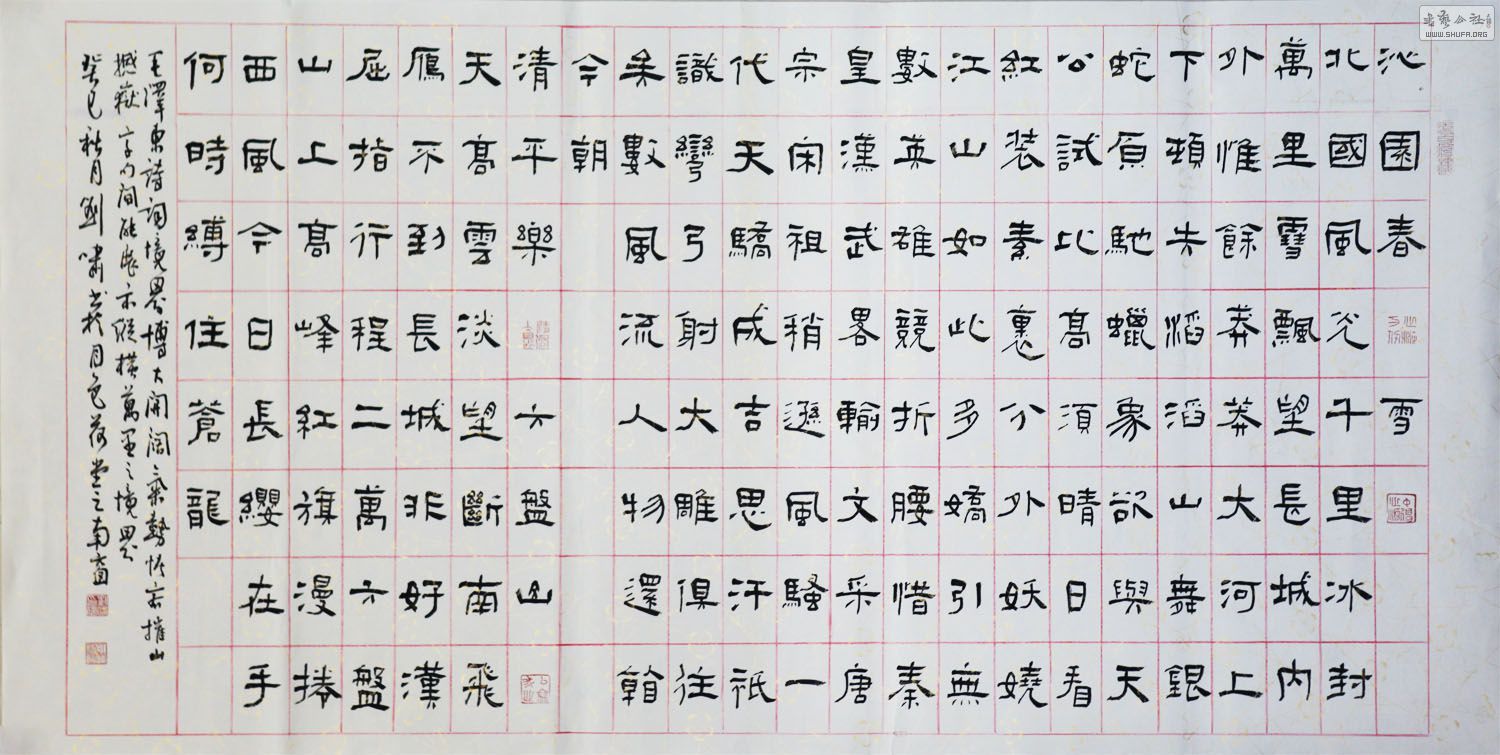 沁園春 雪
北國風光千里冰封
萬里雪飄望長城內
外惟餘莽莽大河上
下頓失滔滔山舞銀
蛇原馳蠟象欲與天
公試比高須晴日看
紅裝素裹分外妖嬈
江山如此多嬌引無
數英雄競折腰惜秦
皇漢武略輸文采唐
宗宋祖稍遜風騷一
代天驕成吉思汗祇
識彎弓射大雕俱往
矣數風流人物還看
今朝
清平樂 六盤山
天高雲淡望斷南飛
雁不到長城非好漢
屈指行程二萬六盤
山上高峰紅旗漫捲
西風今日長纓在手
何時縛住蒼龍
毛澤東詩詞境界博大開闊氣勢恢宏摧山
撼嶽字句間能示縱橫萬里之境界
癸巳秋月劉嘯書於月色荷堂之南窗
書藝公社
WWW.SHUFA.ORG